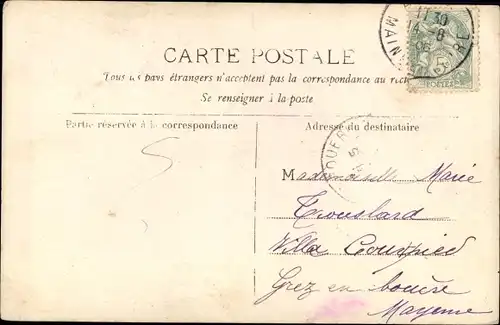 CARTE POSTALE
Tous les pays étrangers n'acceptent pas la correspondance au recto
Se renseigner à la poste
Partie réservée à la correspondance
Adresse du destinataire
5
Mademoiselle Marie
Trouslard
Villa
Grez en bouère
Mayenne